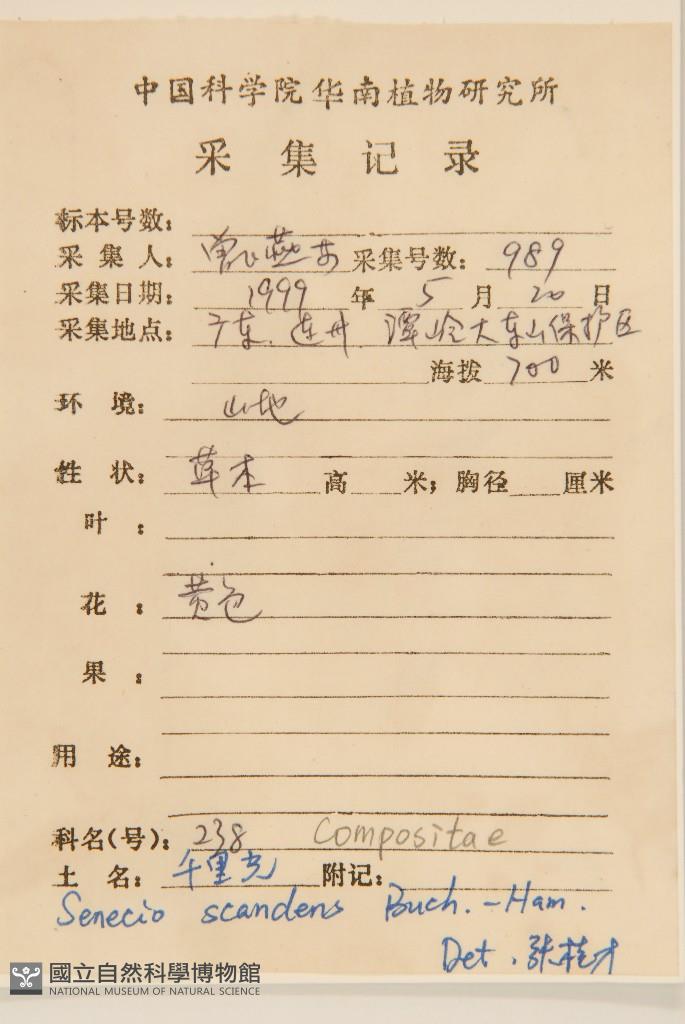 中国科学院华南植物研究所
采集记录
标本号数：
采集人：曾 采集号数：989
采集日期：1999年5月20日
采集地点：广东．连州．潭岭大东山保护区
海拔700米
环境：山地
性状：草本 高 米；胸径 厘米
叶：
花：黄色
果：
用途：
科名(号)：238 Compositae
土名：千里光 附记：
Senecio scandens Buch.-Ham.
Det. 张桂才
國立自然科學博物館
NATIONAL MUSEUM OF NATURAL SCIENCE